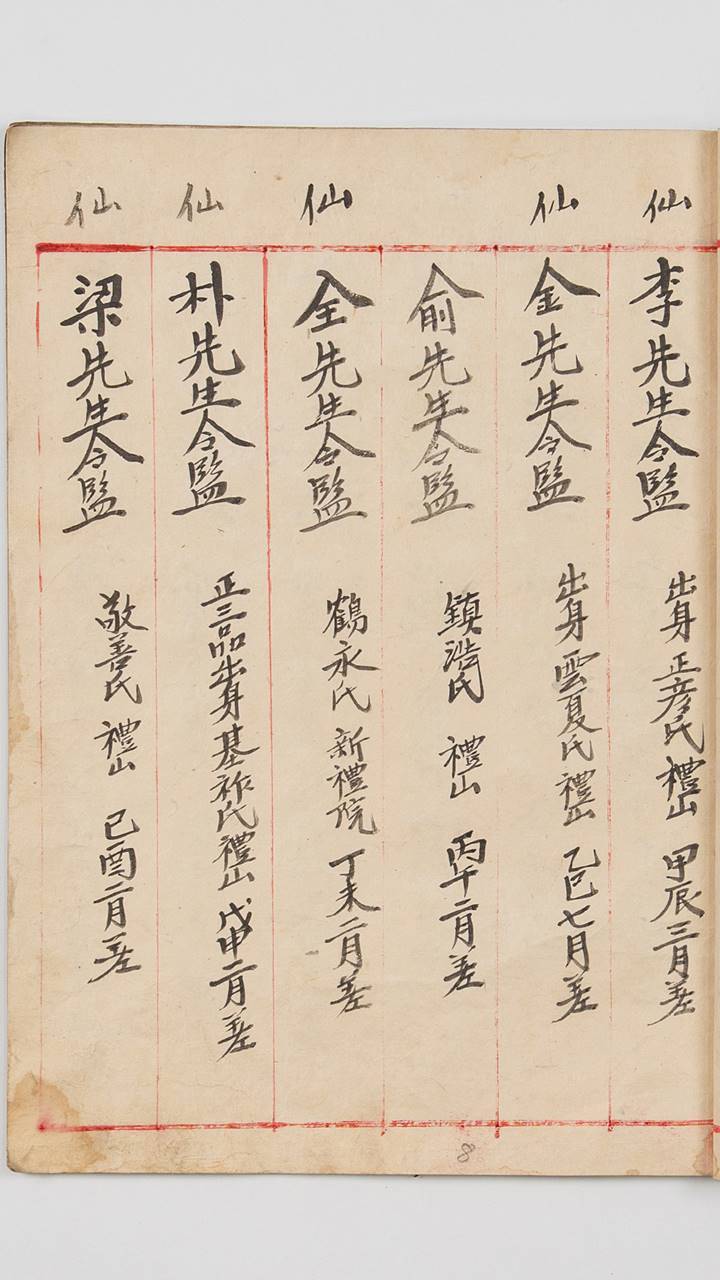 仙
李先生令監 出身 正彦氏 禮山 甲辰三月差
仙
金先生令監 出身 雲夏氏 禮山 乙巳七月差
俞先生令監 鎮浩氏 禮山 丙午二月差
仙
全先生令監 鶴永氏 新禮院 丁未二月差
仙
朴先生令監 正三品出身 基祚氏 禮山 戊申二月差
仙
梁先生令監 敬善氏 禮山 己酉二月差
8